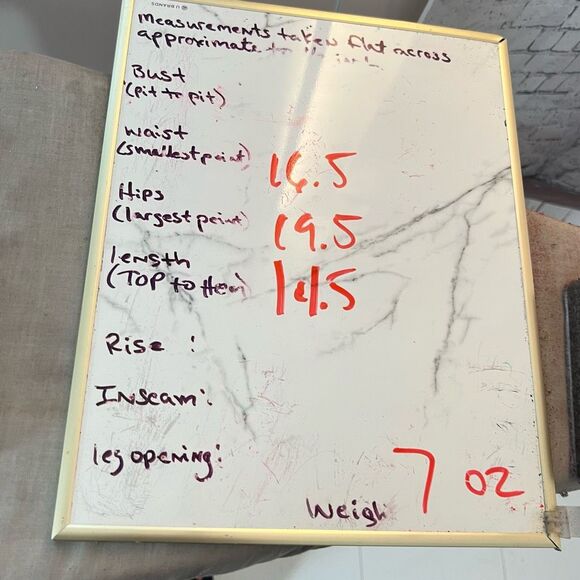 U BRANDS
Measurements taken flat across
approximate
Bust
(pit to pit)
waist
(smallest point)
16.5
Hips
(largest point)
19.5
length
(TOP to Hem)
14.5
Rise :
Inseam:
leg opening:
Weigh
7 oz